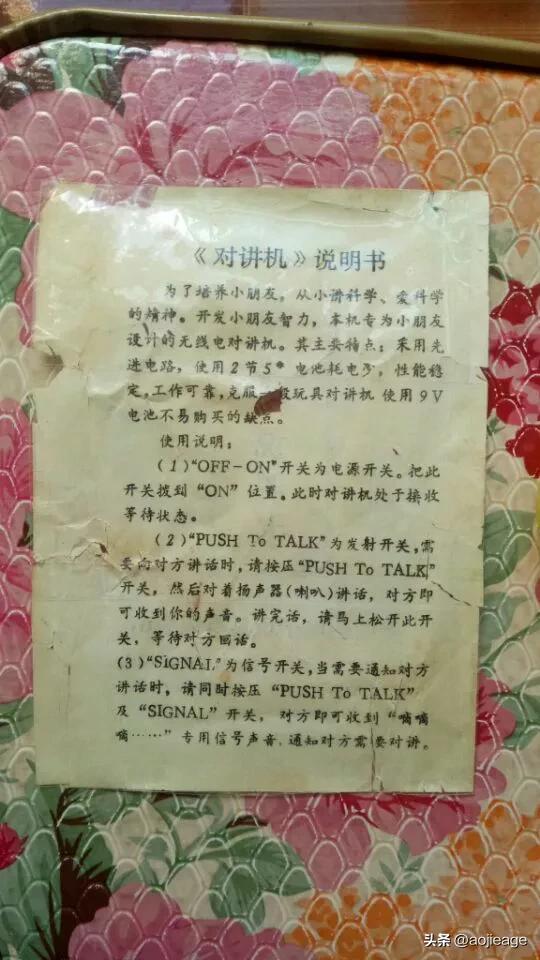 《对讲机》说明书
为了培养小朋友，从小讲科学、爱科学
的精神。开发小朋友智力，本机专为小朋友
设计的无线电对讲机。其主要特点：采用先
进电路，使用2节5# 电池耗电 ，性能稳
定，工作可靠，克服一般玩具对讲机 使用9V
电池不易购买的缺点。
使用说明：
(1)“OFF-ON”开关为电源开关。把此
开关拨到“ON”位置。此时对讲机处于接收
等待状态。
(2)“PUSH To TALK”为发射开关，需
要向对方讲话时，请按压“PUSH To TALK”
开关，然后对着扬声器(喇叭)讲话，对方即
可收到你的声音。讲完话，请马上松开此开
关，等待对方回话。
(3)“SIGNAL”为信号开关，当需要通知对方
讲话时，请同时按压“PUSH To TALK”
及“SIGNAL”开关，对方即可收到“嘀嘀
嘀……”专用信号声音，通知对方需要对讲。
头条 @aojieage